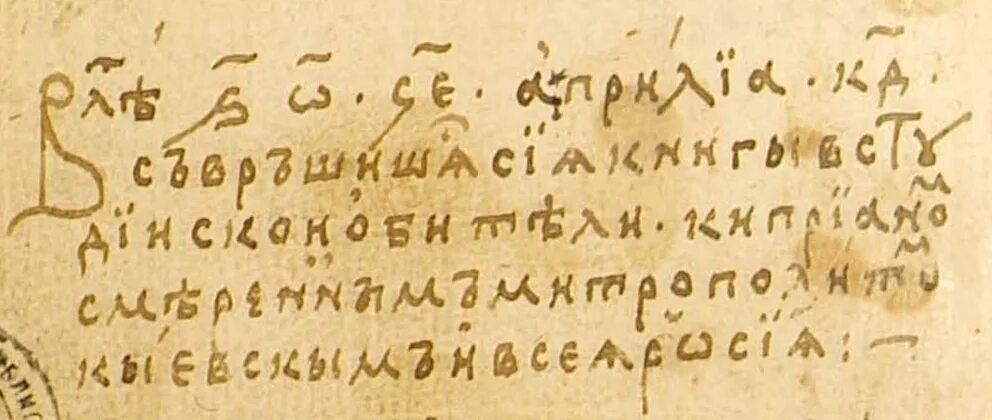 В лѣ҃ ҂ѕ҃ ѿ҃ · ч҃е · а҆прилїа · к҃д ·
съврьшишѧ сїѧ книгы в сту
дїискои о҆битѣли · кипрїаномⷨ
смѣреннымъ митрополитомⷨ
кыевскымъ и҆ всеѧ рѡсїѧ : —
БЛИО